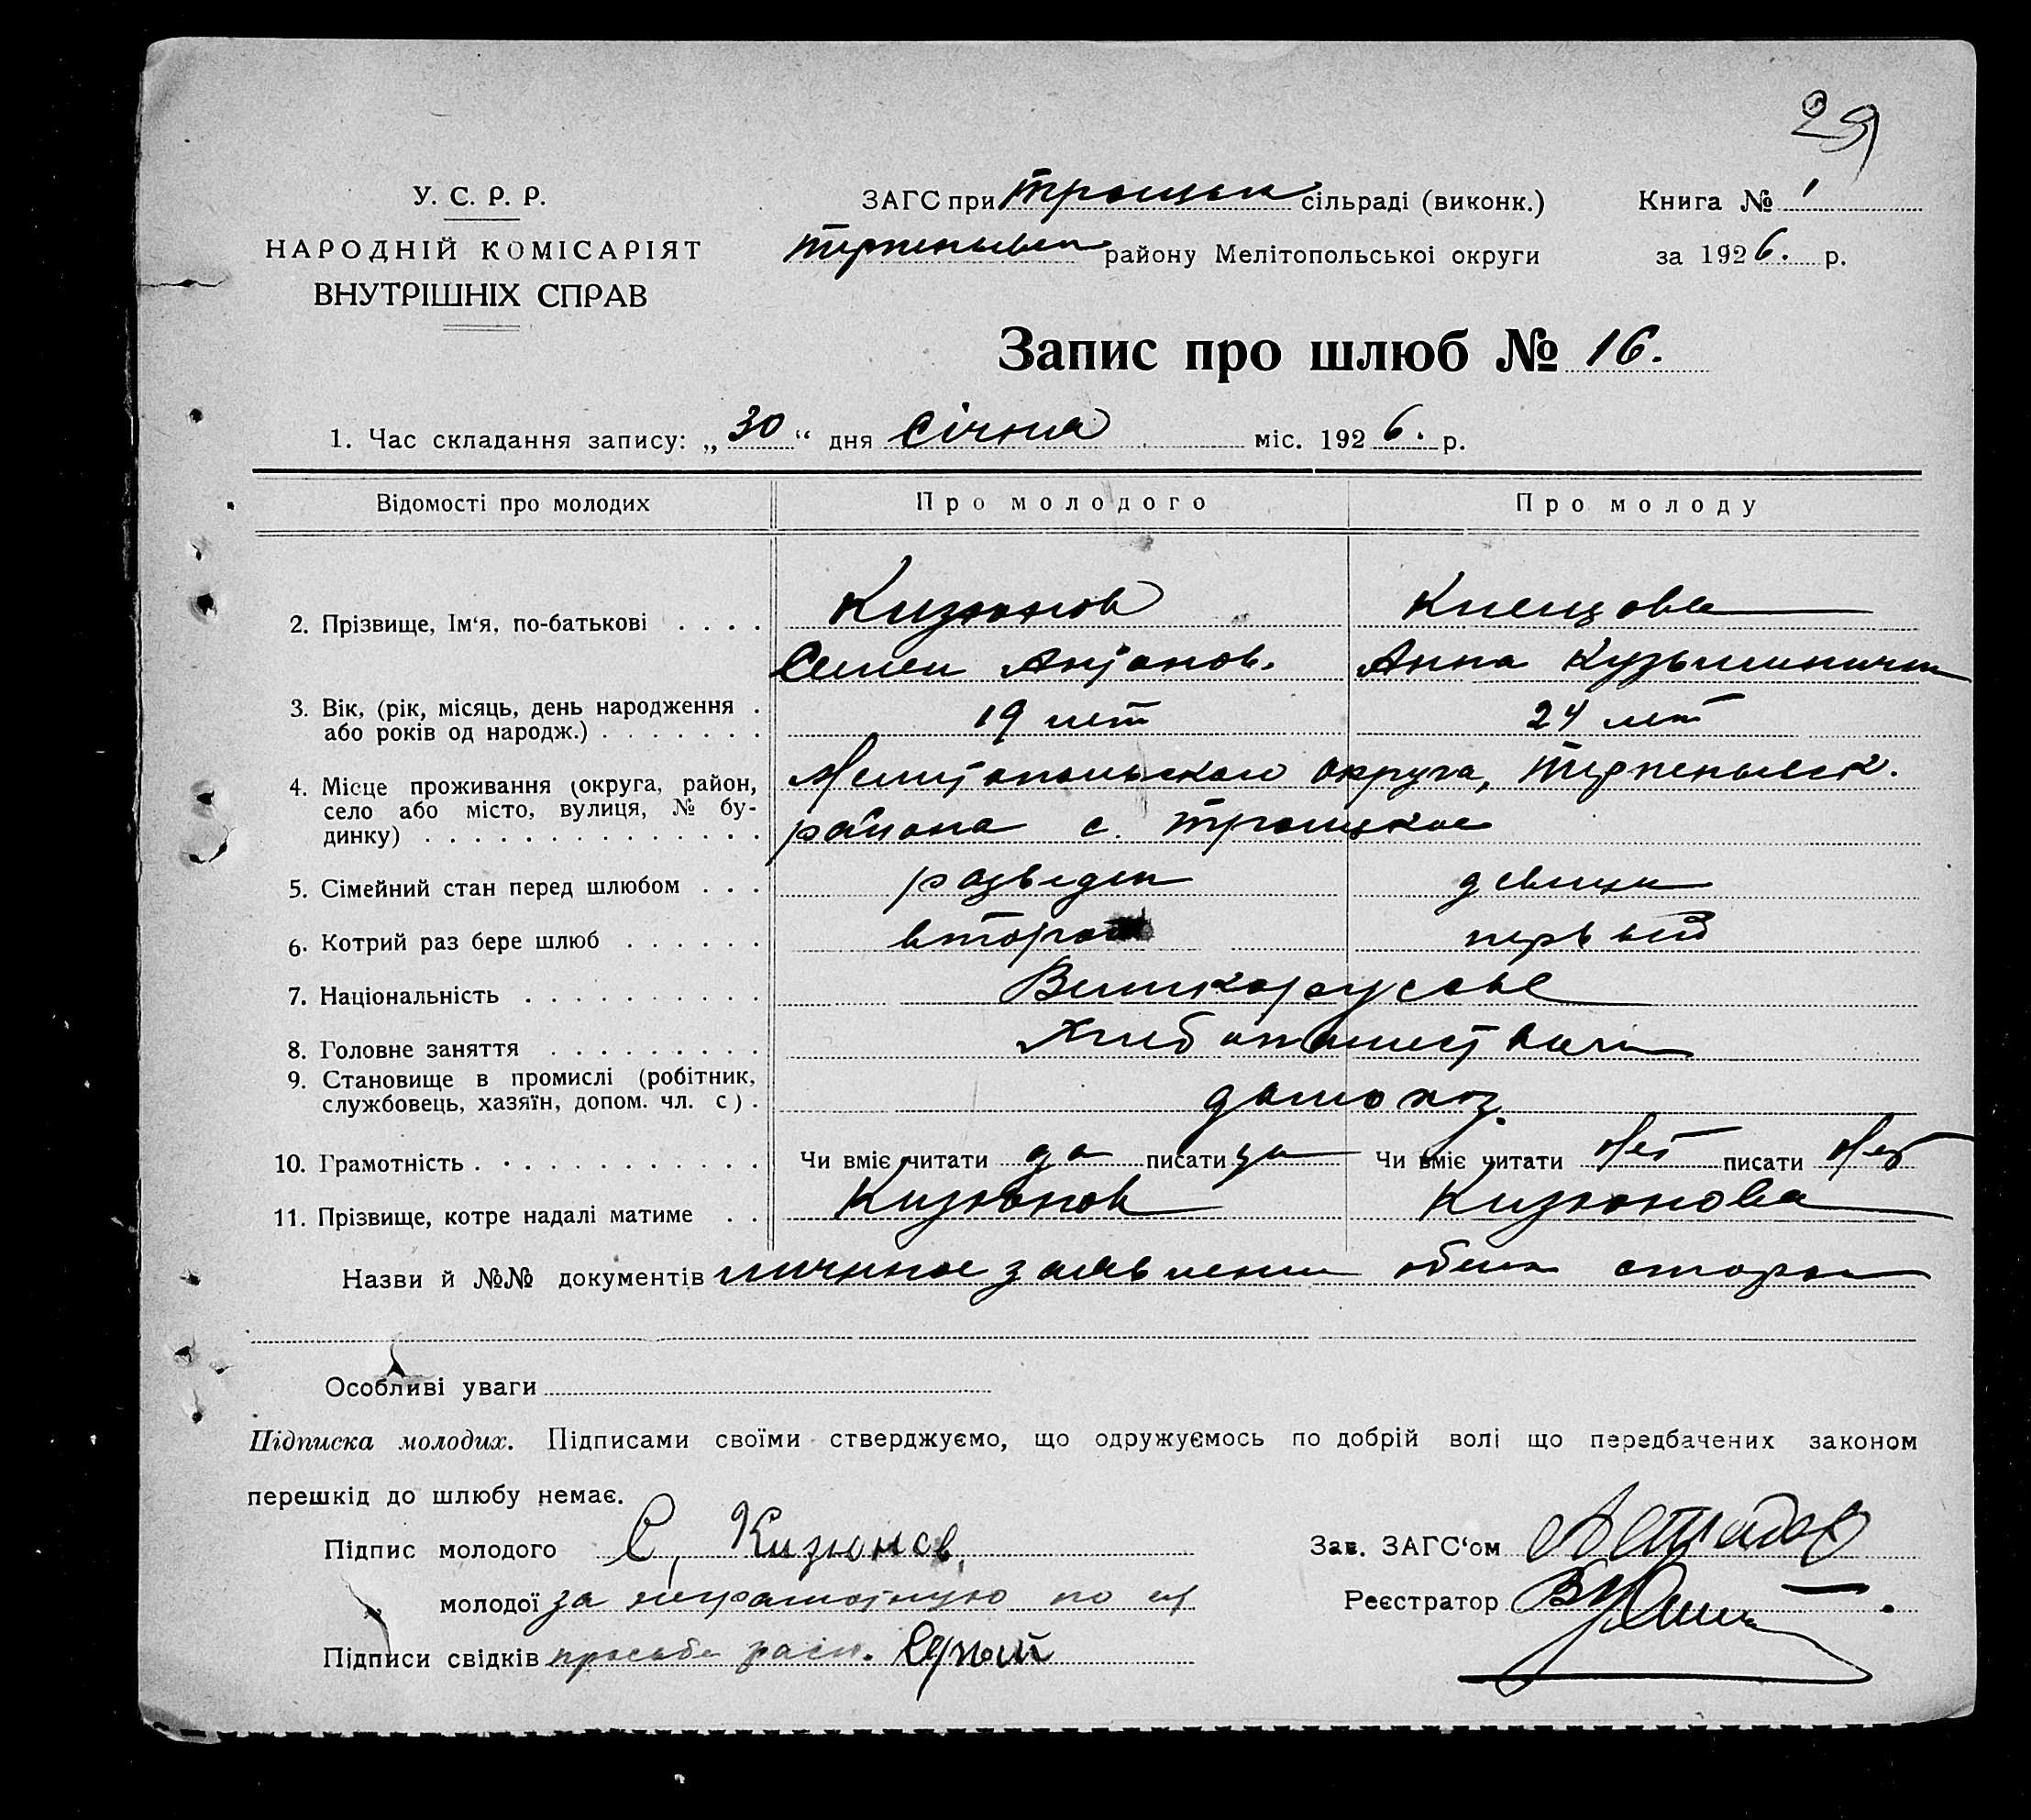 29
У. С. Р. Р.
НАРОДНІЙ КОМІСАРІЯТ
ВНУТРІШНІХ СПРАВ
ЗАГС при Троицьк сільраді (виконк.)
Терпеньевск району Мелітопольської округи
Книга № 1
за 1926. р.
Запис про шлюб № 16.
1. Час складання запису: „30“ дня Січня міс. 1926. р.
Відомості про молодих Про молодого Про молоду
2. Прізвище, Ім‘я, по-батькові . . . . Кизюнов
Семен Антонов. Анна Кузьминична
3. Вік, (рік, місяць, день народження .
або років од народж.) . . . . . . . 19 лет 24 лет
4. Місце проживання (округа, район, Мелитопольского округа, Терпеньевск.
село або місто, вулиця, № бу-
динку) . . . . . . . . . . . . . . района с. Троицкое
5. Сімейний стан перед шлюбом . . . разведен девица
6. Котрий раз бере шлюб . . . . . . второй первый
7. Національність . . . . . . . . . . Великорусские
8. Головне заняття . . . . . . . . .
9. Становище в промислі (робітник,
службовець, хазяїн, допом. чл. с) . домохоз.
10. Грамотність . . . . . . . . . . . Чи вміє читати да писати да Чи вміє читати Нет писати Нет
11. Прізвище, котре надалі матиме . . Кизюнов Кизюнова
Назви й №№ документів личное заявление обеих сторон
Особливі уваги
Підписка молодих. Підписами своїми стверджуємо, що одружуємось по добрій волі що передбачених законом
перешкід до шлюбу немає.
Підпис молодого С. Кизюнов.
Зав. ЗАГС‘ом
„ молодої за неграмотную по ея
Реєстратор
Підписи свідків просьбе расп.